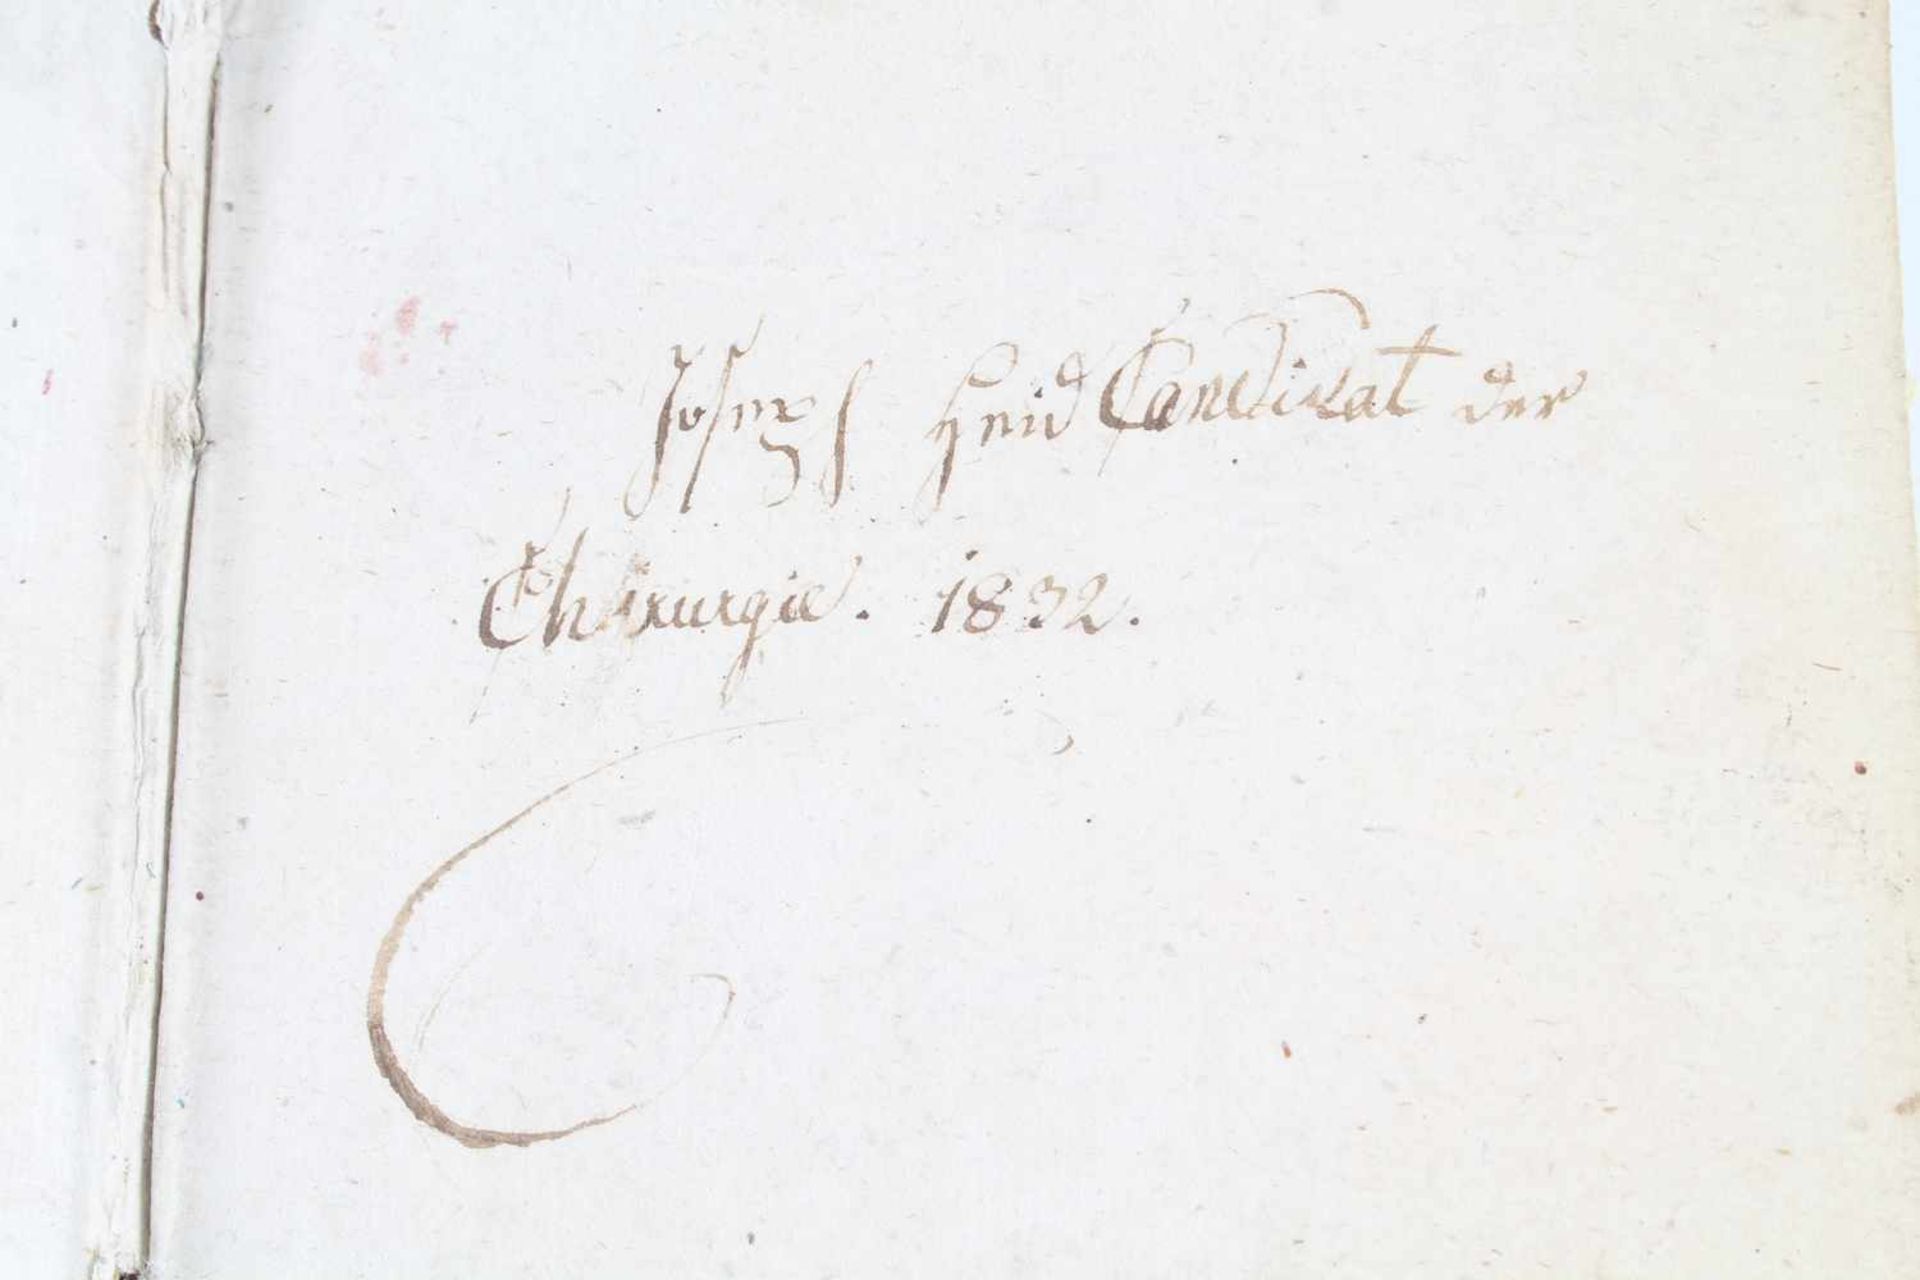 Joseph Heid Candidat der
Chirurgie. 1832.